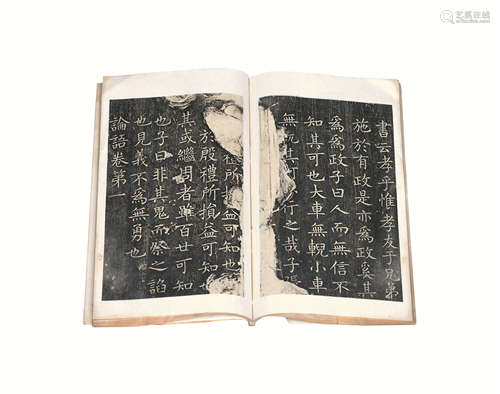 書云孝乎惟孝友于兄弟
施於有政是亦爲政奚其
爲爲政子曰人而無信不
知其可也大車無輗小車
無軏其何行之哉子張
禮所益可知也
於殷禮所損益可知也
其或繼周者雖百世可知
也子曰非其鬼而祭之諂
也見義不爲無勇也
論語卷第一